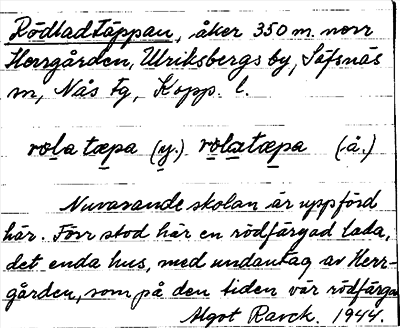 Rödladtäppan, åker 350 m. norr
Herrgården, Ulriksbergs by, Säfsnäs
sn, Nås fg, Kopp. l.
rola tæpa (y.) rolatæpa (å.)
Nuvarande skolan är uppförd
här. Förr stod här en rödfärgad lada,
det enda hus, med undantag av Herr-
gården, som på den tiden var rödfärgat
Algot Ravck. 1944.